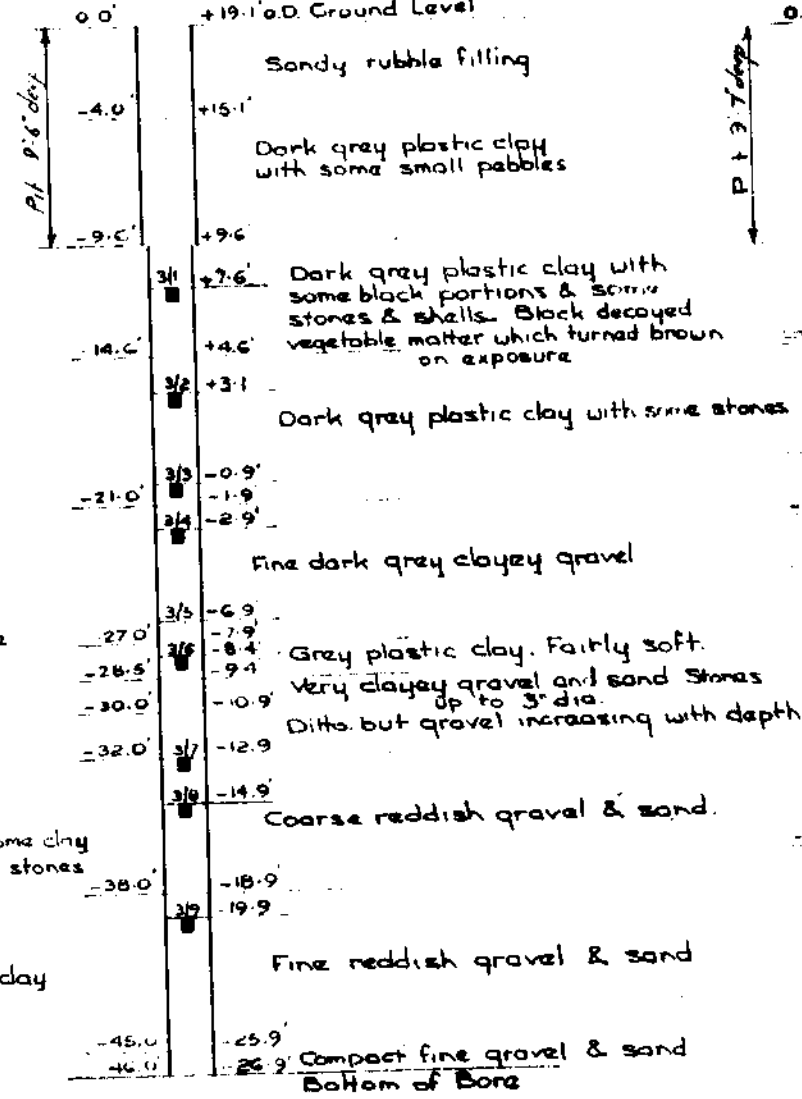 0.0' +19.1' O.D. Ground Level 0.
Sandy rubble filling
Pit 9'-6" deep
-4.0' +15.1'
Dark grey plastic clay
with some small pebbles
P + 3'.7' deep
-9.6' +9.6
3/1 +7.6' Dark grey plastic clay with
some black portions & some
stones & shells. Black decayed
-14.6' +4.6' vegetable matter which turned brown
on exposure
3/2 +3.1
Dark grey plastic clay with some stones
3/3 -0.9'
-21.0' -1.9
3/4 -2.9'
Fine dark grey clayey gravel
3/5 -6.9
27.0' -7.9'
3/6 -8.4 Grey plastic clay. Fairly soft.
-28.5' -9.4
Very clayey gravel and sand Stones
-30.0' -10.9' up to 3" dia.
Ditto. but gravel increasing with depth
-32.0' 3/7 -12.9
3/8 -14.9'
Coarse reddish gravel & sand.
ome clay
stones
-38.0' -18.9'
3/9 -19.9
Fine reddish gravel & sand
clay
-45.0 -25.9'
46.0' -26.9' Compact fine gravel & sand
Bottom of Bore